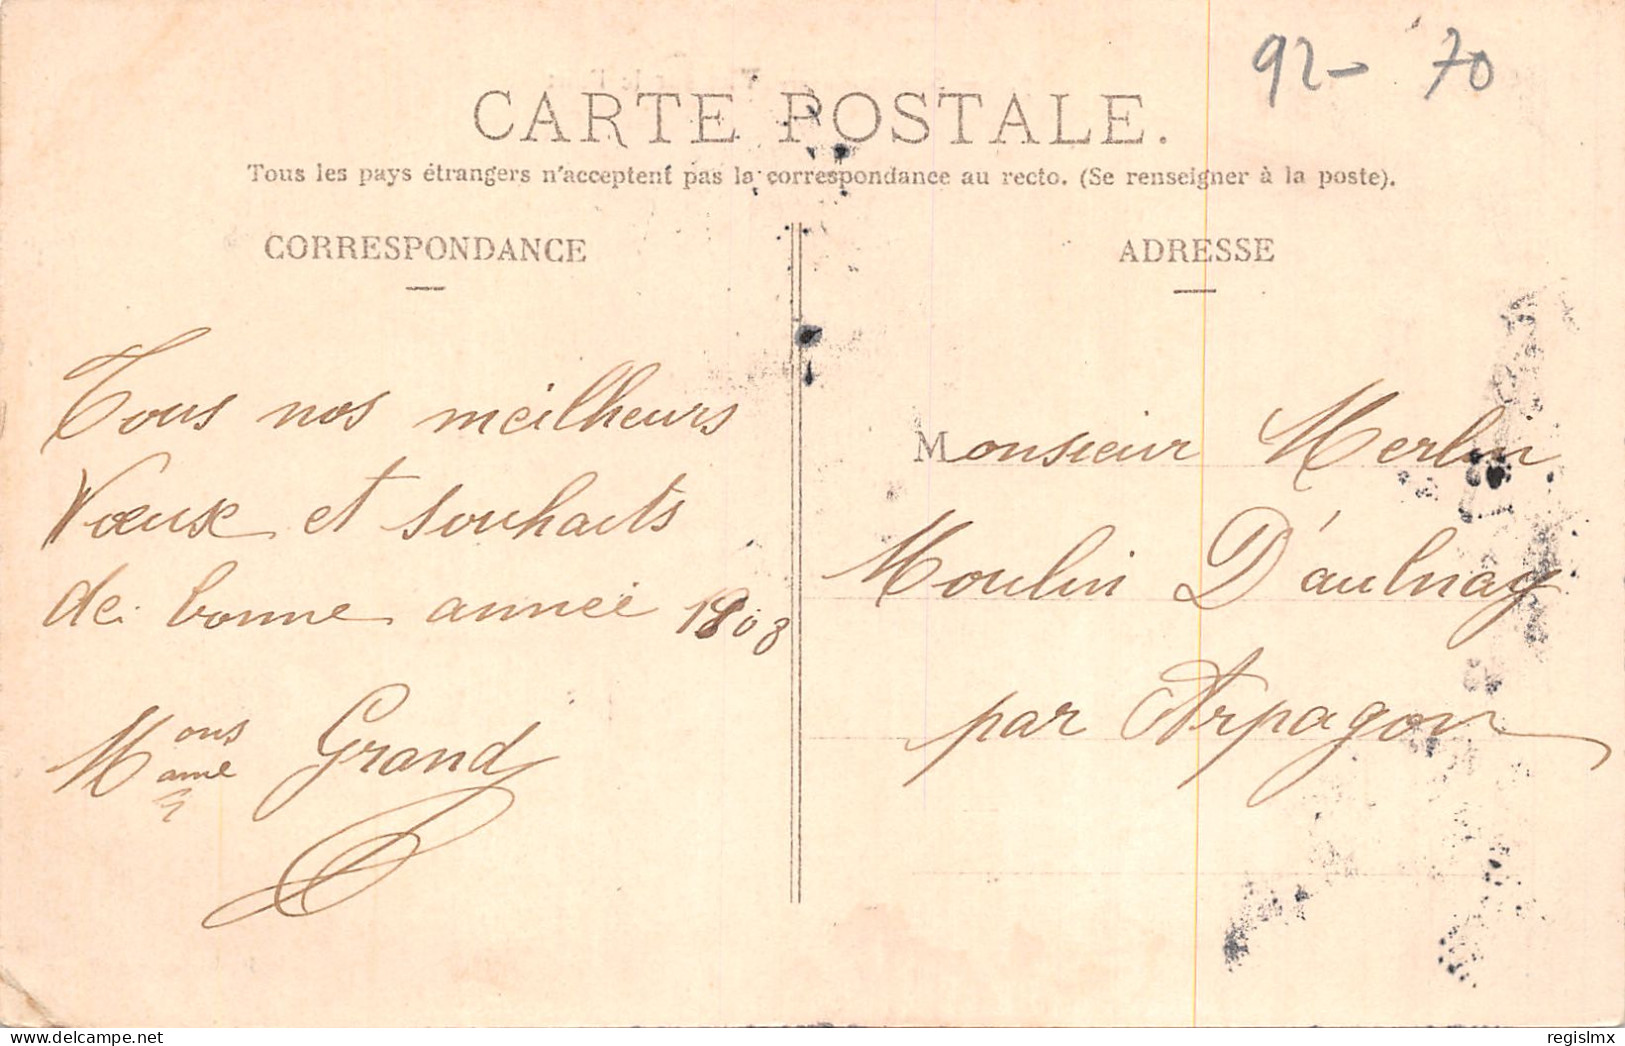 92- 70
CARTE POSTALE.
Tous les pays étrangers n'acceptent pas la correspondance au recto. (Se renseigner à la poste).
CORRESPONDANCE
ADRESSE
Tous nos meilheurs
Vœuse et souhaits
de bonne année 1908
Mons
ame Grand
Monsieur Merlin
Moulin D'aulnay
par Arpagon
regislmx